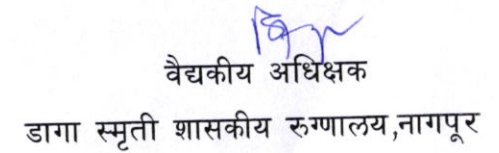 वैद्यकीय अधिक्षक
डागा स्मृती शासकीय रुग्णालय,नागपूर